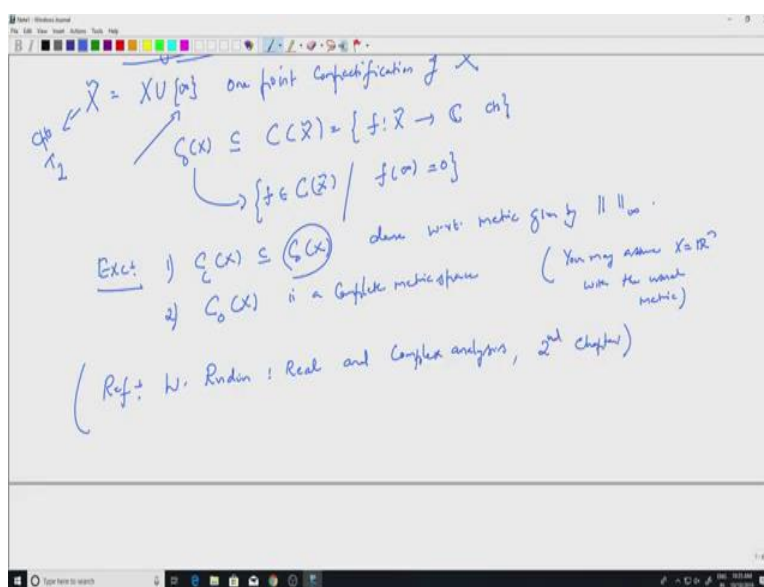 File Edit View Insert Actions Tools Help
X̃ = X ∪ {∞} one point Compactification of X
cpt T₂
C₀(X) ⊆ C(X̃) = {f : X̃ → ℂ cts}
{f ∈ C(X̃) / f(∞) = 0}
Exc: 1) C_c(X) ⊆ C₀(X) dense w.r.t. metric given by ‖ ‖_∞.
2) C₀(X) is a Complete metric space (You may assume X = ℝⁿ
with the usual
metric)
(Ref: W. Rudin : Real and Complex analysis, 2nd Chapter)
Type here to search